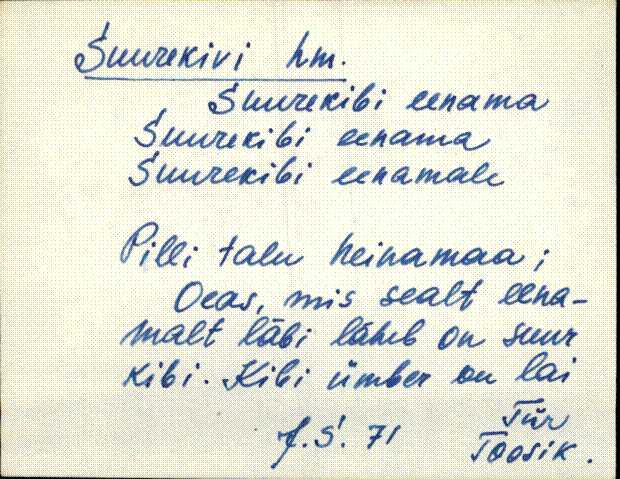 Suurekivi hm.
Suurekibi eenama
Suurekibi eenama
Suurekibi eenamale
Pilli talu heinamaa;
Oeas, mis sealt eena-
malt läbi läheb on suur
kibi. Kibi ümber on lai
Tür
J.S. 71 Toosik.